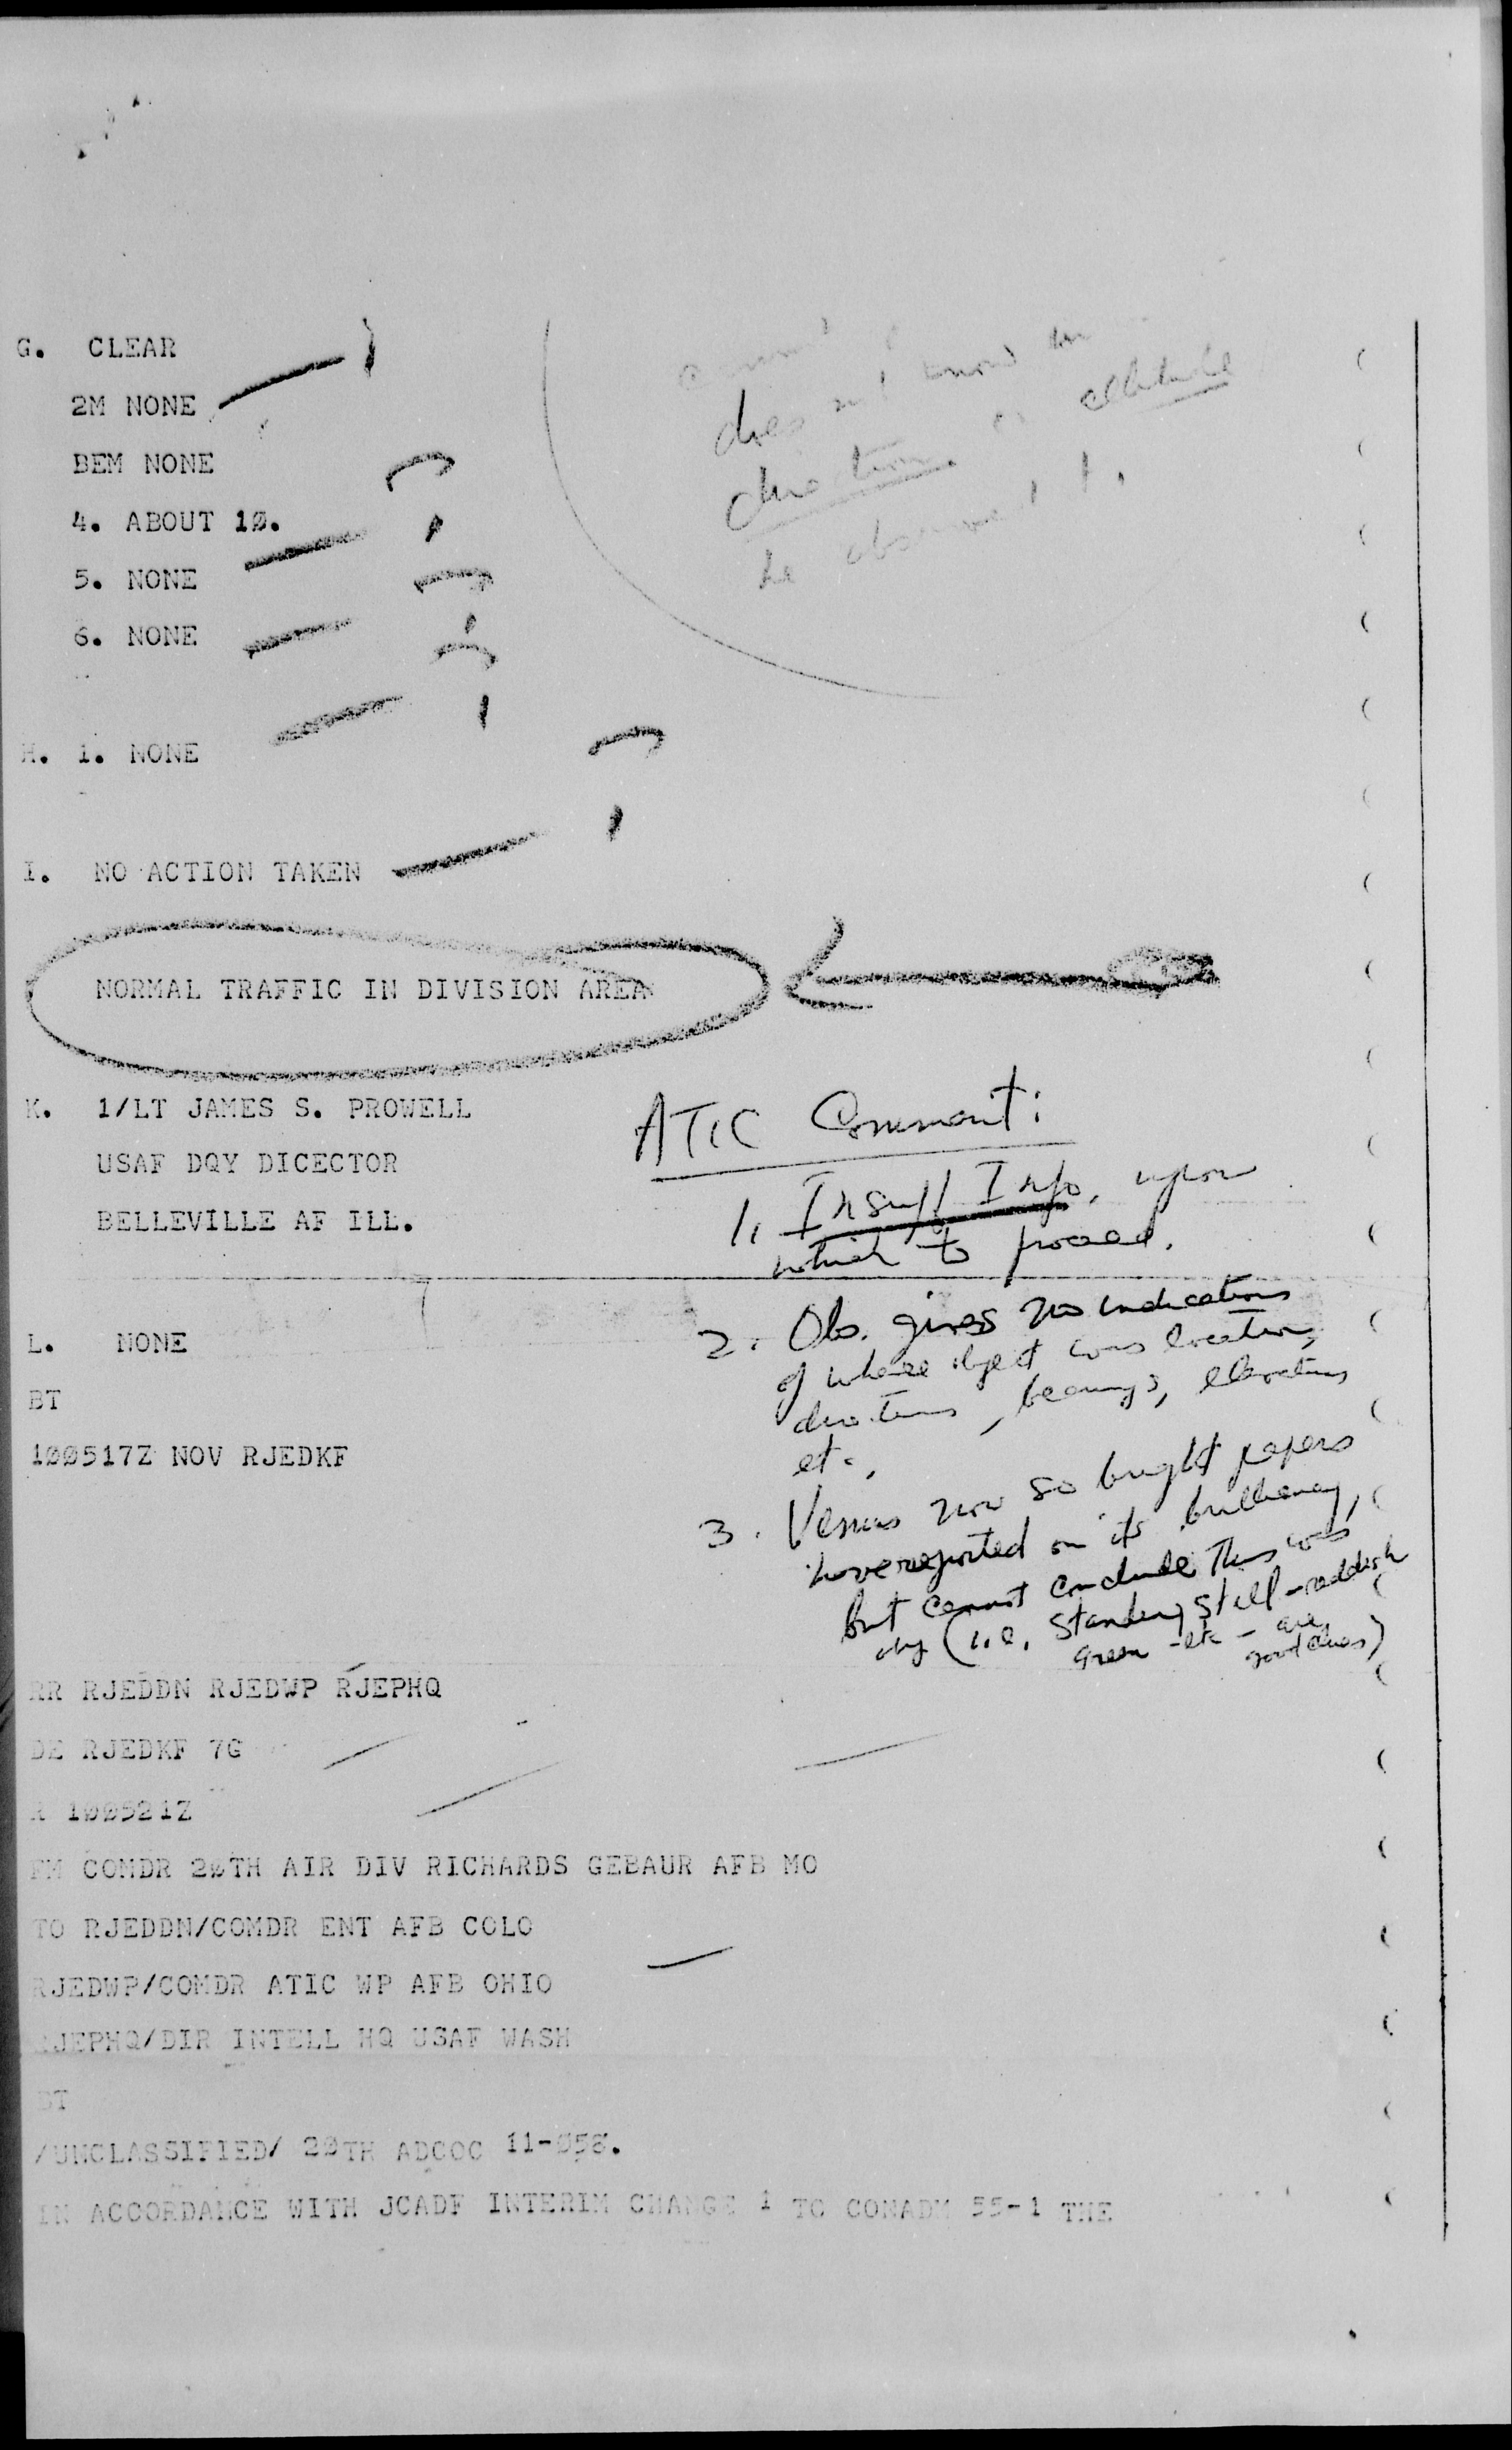 G. CLEAR
2M NONE
BEM NONE
4. ABOUT 10.
5. NONE
6. NONE
does know
direction or altitude
he observed it.
H. 1. NONE
I. NO ACTION TAKEN
NORMAL TRAFFIC IN DIVISION AREA
K. 1/LT JAMES S. PROWELL
USAF DQY DICECTOR
BELLEVILLE AF ILL.
ATIC Comment:
1. Insuff Info. upon
which to proceed.
2. Obs. gives no indications
of where object was location,
directions, bearings, elevations
etc.
3. Venus now so bright papers
have reported on its brilliancy,
but cannot conclude this was
obj (i.e. standing still - reddish
green - etc - are
good clues)
L. NONE
BT
100517Z NOV RJEDKF
RR RJEDDN RJEDWP RJEPHQ
DE RJEDKF 7G
R 100521Z
FM COMDR 20TH AIR DIV RICHARDS GEBAUR AFB MO
TO RJEDDN/COMDR ENT AFB COLO
RJEDWP/COMDR ATIC WP AFB OHIO
RJEPHQ/DIR INTELL HQ USAF WASH
BT
/UNCLASSIFIED/ 20TH ADCOC 11-058.
IN ACCORDANCE WITH JCADF INTERIM CHANGE 1 TO CONADM 55-1 THE